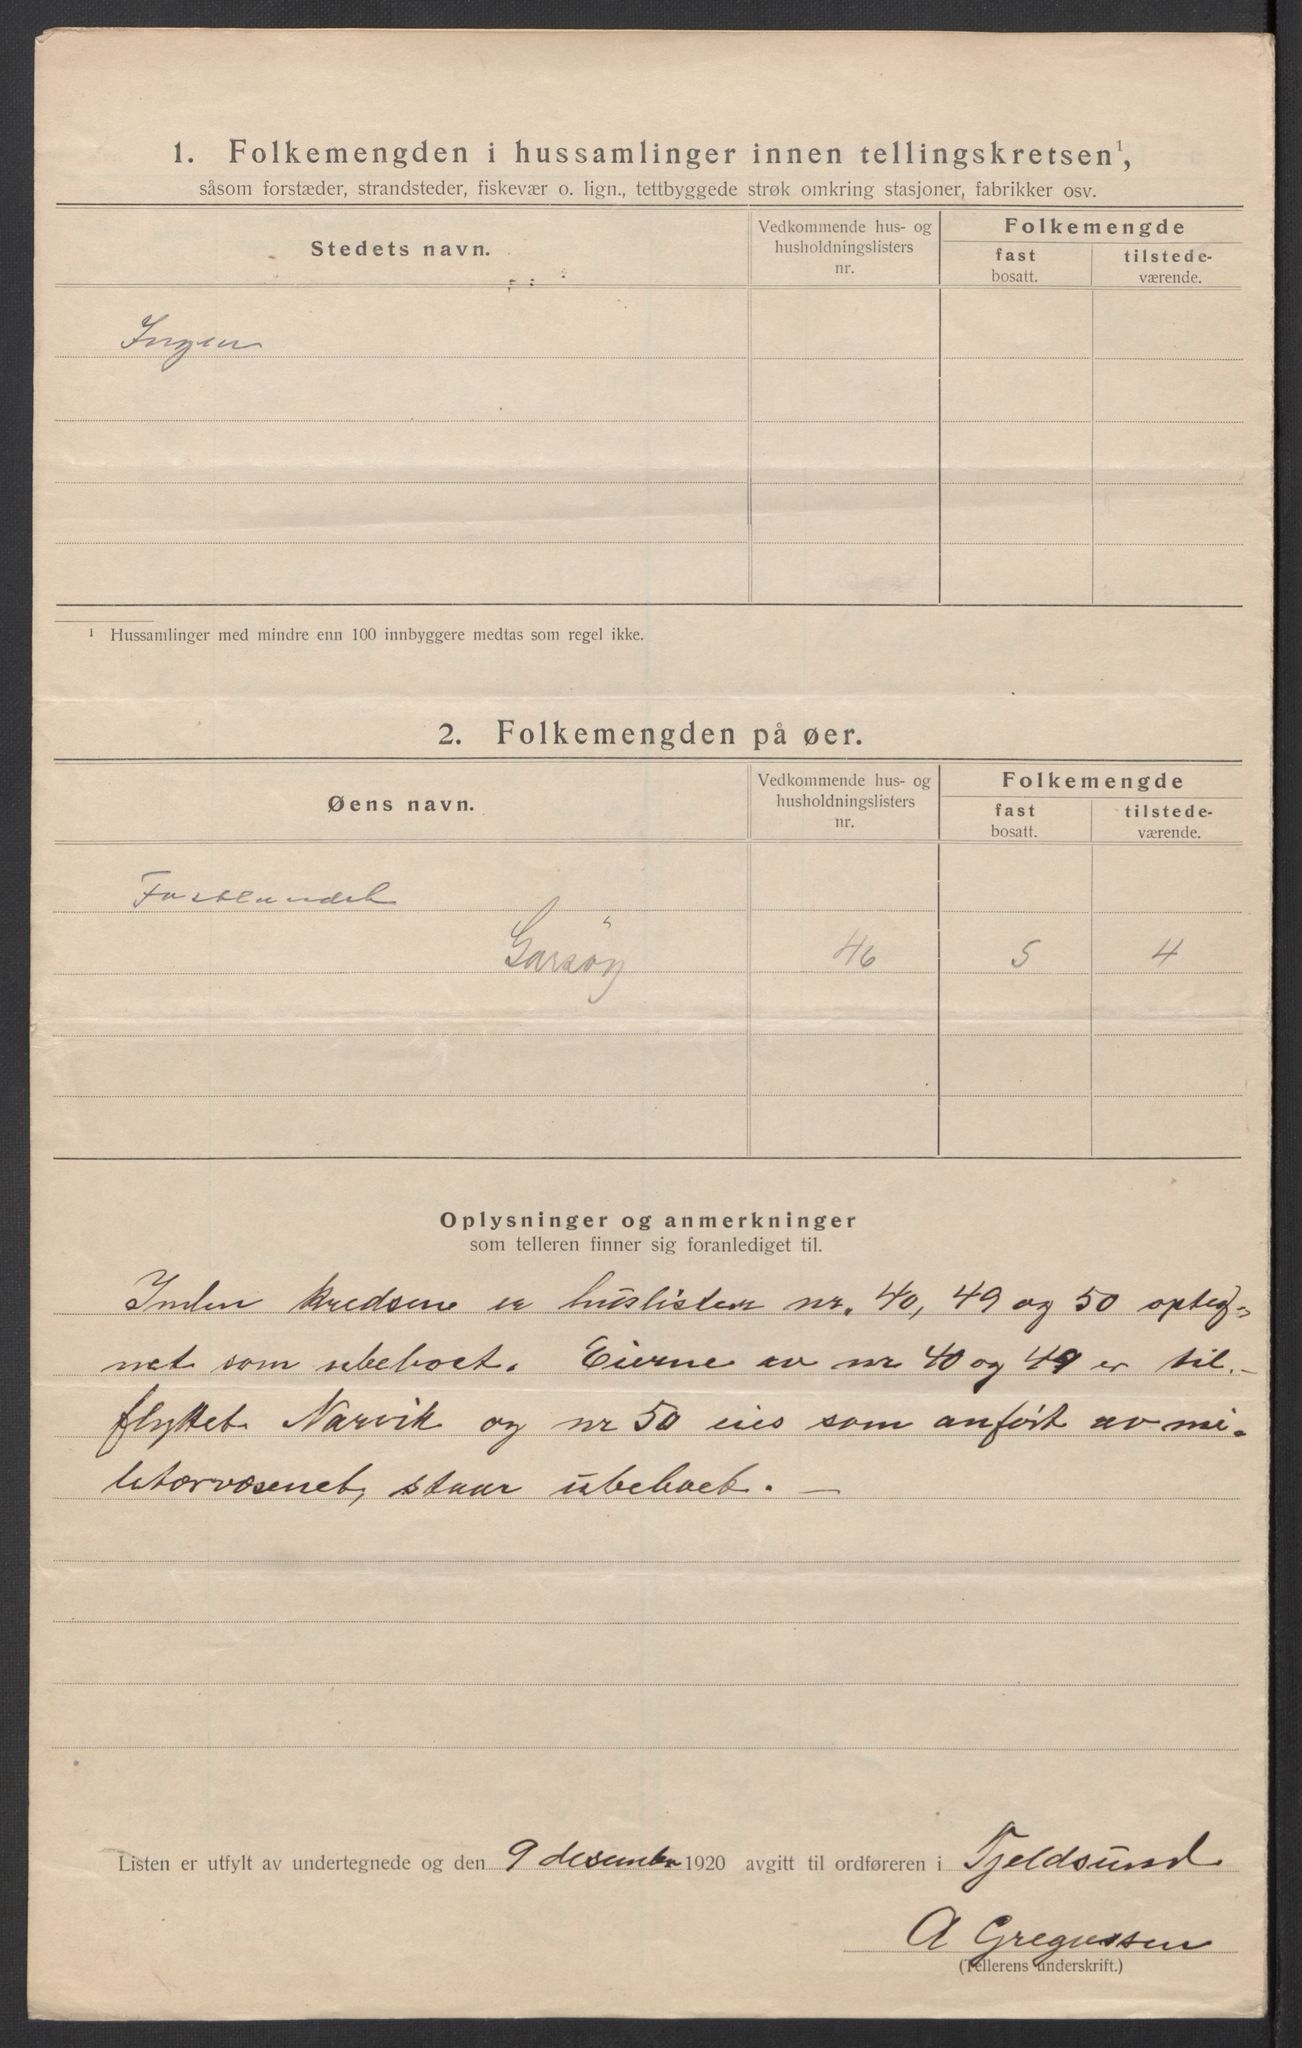 1. Folkemengden i hussamlinger innen tellingskretsen¹,
såsom forstæder, strandsteder, fiskevær o. lign., tettbyggede strøk omkring stasjoner, fabrikker osv.
Stedets navn.
Vedkommende hus- og
husholdningslisters
nr.
Folkemengde
fast
bosatt.
tilstede-
værende.
Ingen
¹ Hussamlinger med mindre enn 100 innbyggere medtas som regel ikke.
2. Folkemengden på øer.
Øens navn.
Vedkommende hus- og
husholdningslisters
nr.
Folkemengde
fast
bosatt.
tilstede-
værende.
Fastlandet
Garsöy 46 5 4
Oplysninger og anmerkninger
som telleren finner sig foranlediget til.
Inden kredsene er huslisten nr. 40, 49 og 50 opteg-
net som ubeboet. Eierne av nr 40 og 49 er til-
flyttet Narvik og nr 50 eies som anført av mi-
litærvæsenet, staar ubeboet. —
Listen er utfylt av undertegnede og den 9 desember 1920 avgitt til ordføreren i Tjeldsund
A Gregussen
(Tellerens underskrift.)